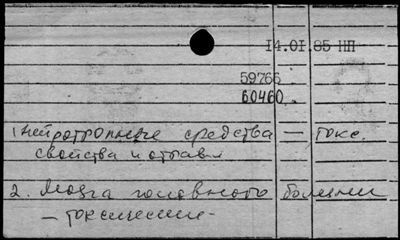 14.01.85 НП
59766
60460.
1 нейротропные средства — токс.
свойства и отравл
2. Мозга головного болезни
— токсические-